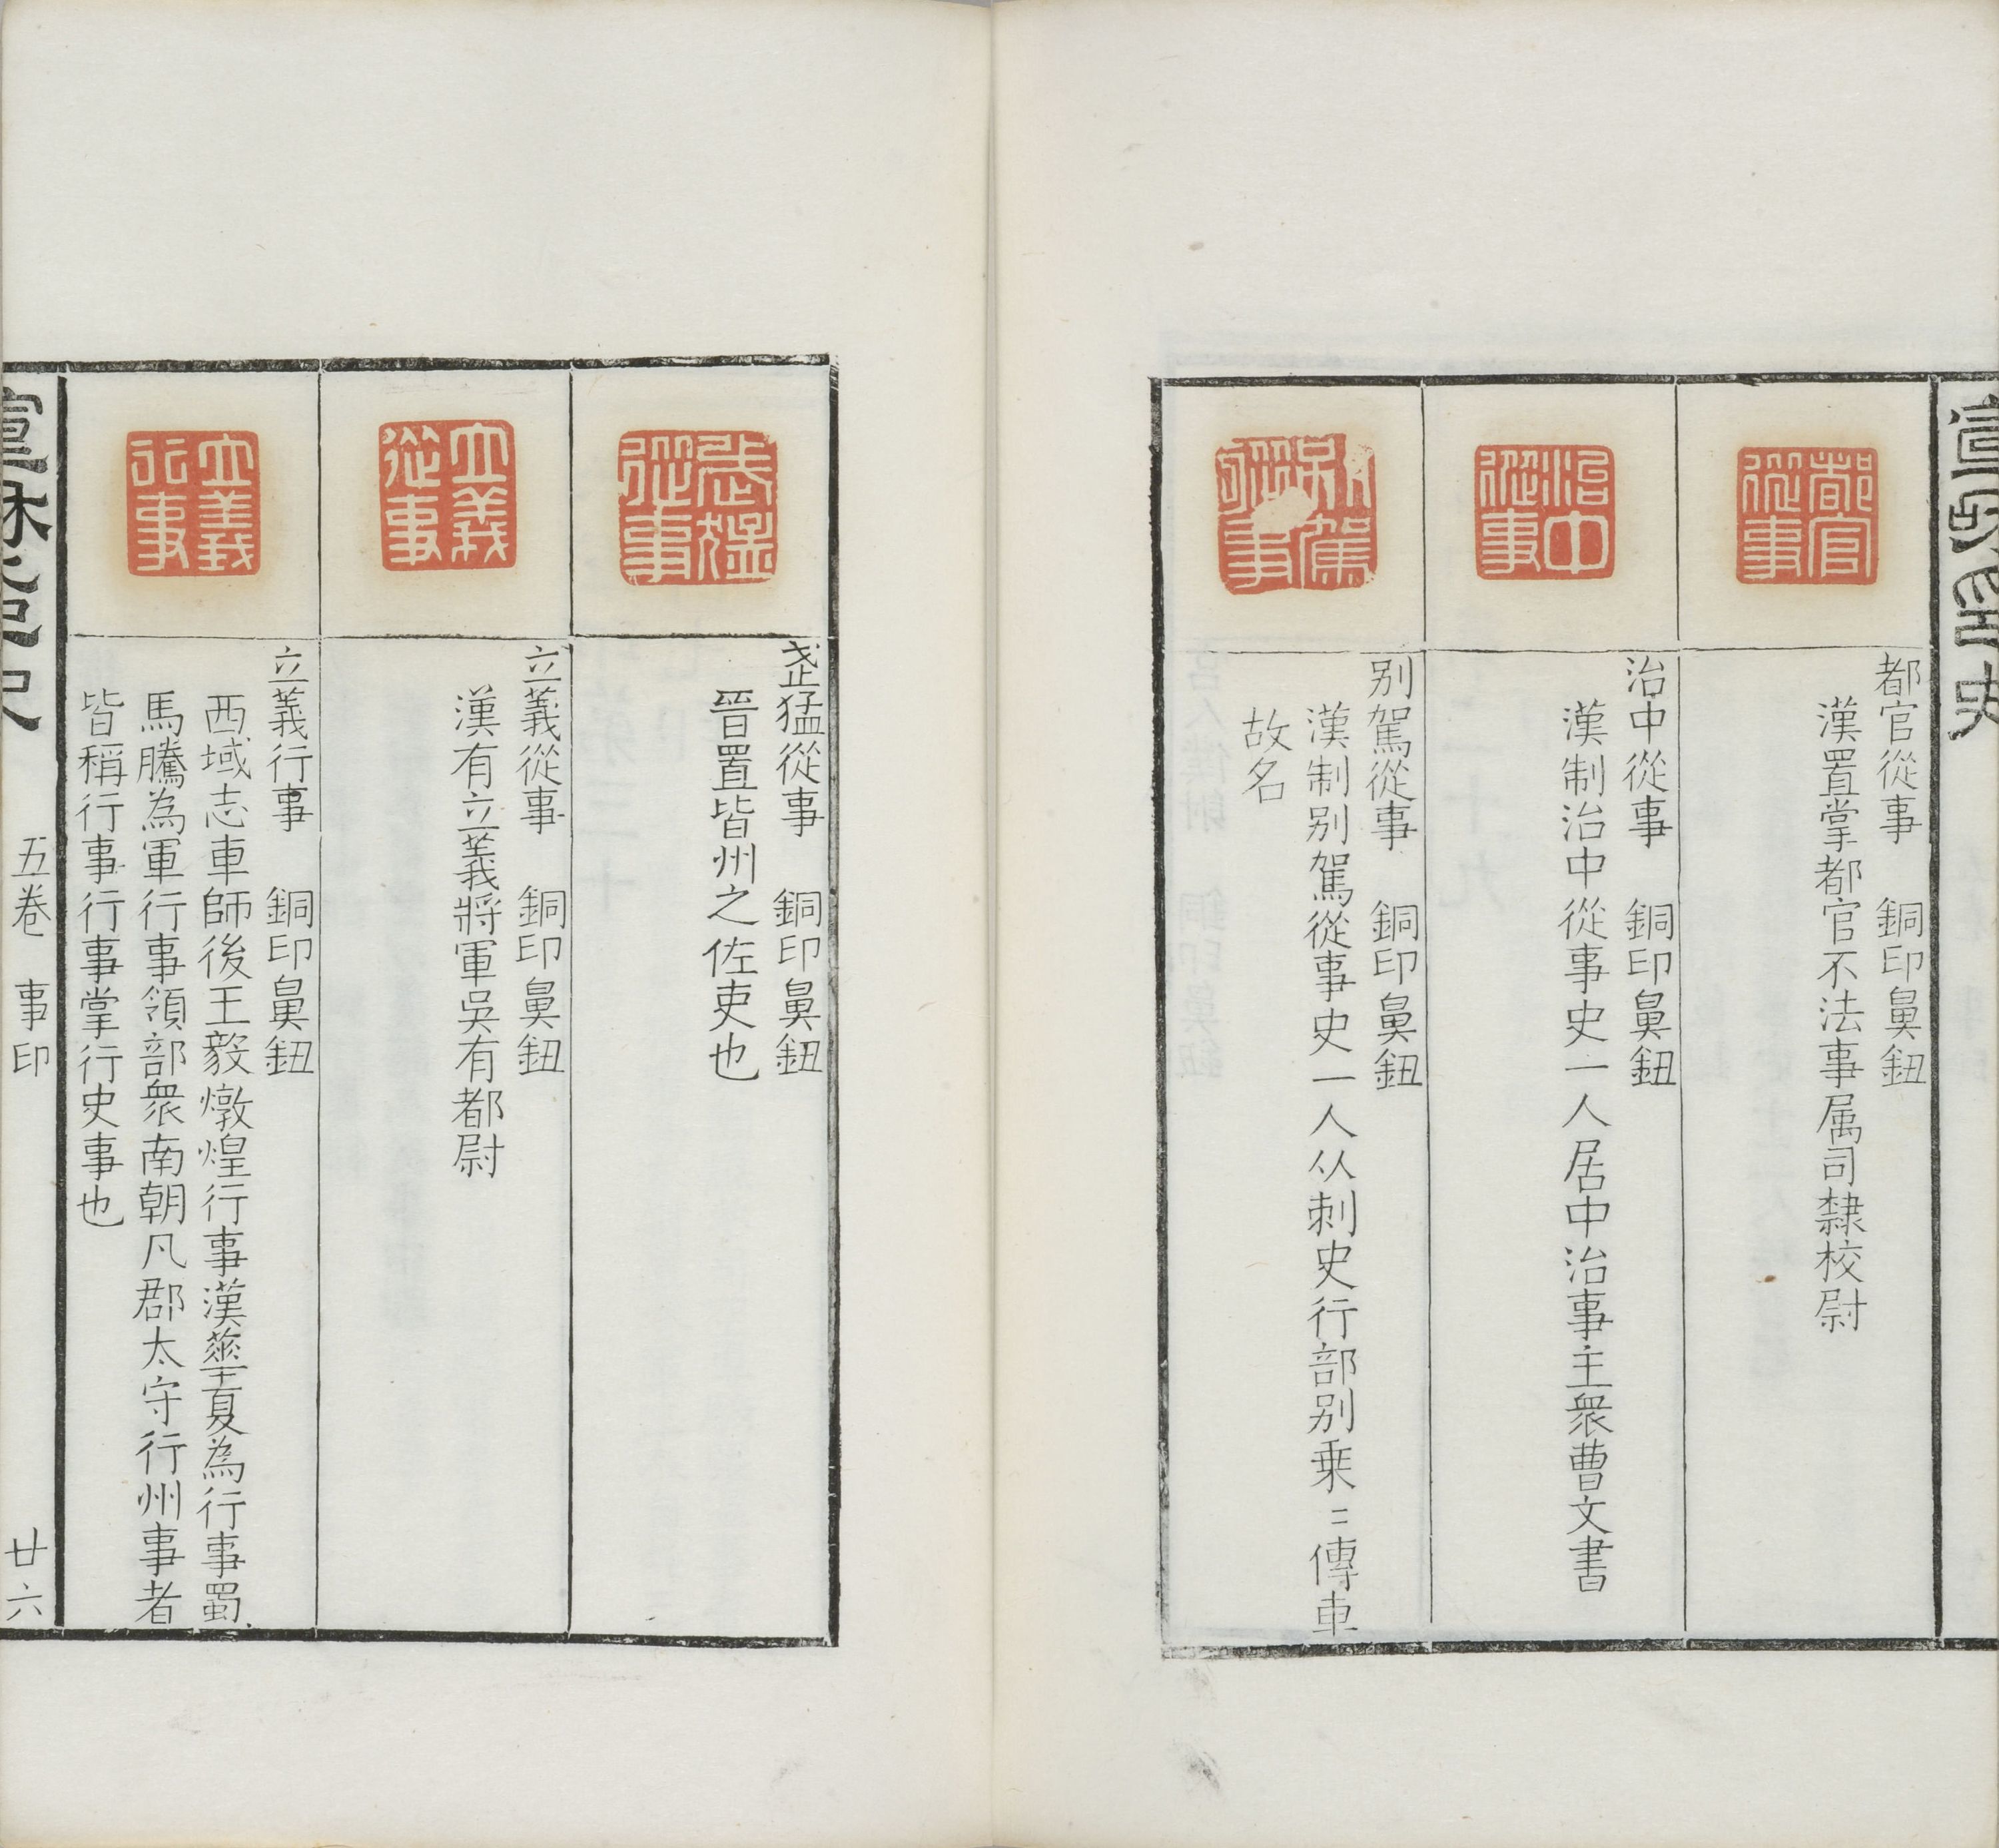 宣和印史
都官從事
都官從事 銅印鼻鈕
漢置掌都官不法事属司隸校尉
治中從事
治中從事 銅印鼻鈕
漢制治中從事史一人居中治事主衆曹文書
別駕從事
别駕從事 銅印鼻鈕
漢制别駕從事史一人从刺史行部别乗〻傳車
故名
武猛從事
武猛從事 銅印鼻鈕
晉置皆州之佐吏也
立義從事
立義從事 銅印鼻鈕
漢有立義將軍吳有都尉
立義行事
立義行事 銅印鼻鈕
西域志車師後王毅燉煌行事漢夏為行事蜀
馬騰為軍行事領部衆南朝凡郡太守行州事者
皆稱行事行事掌行史事也
宣和印史 五卷 事印 廿六